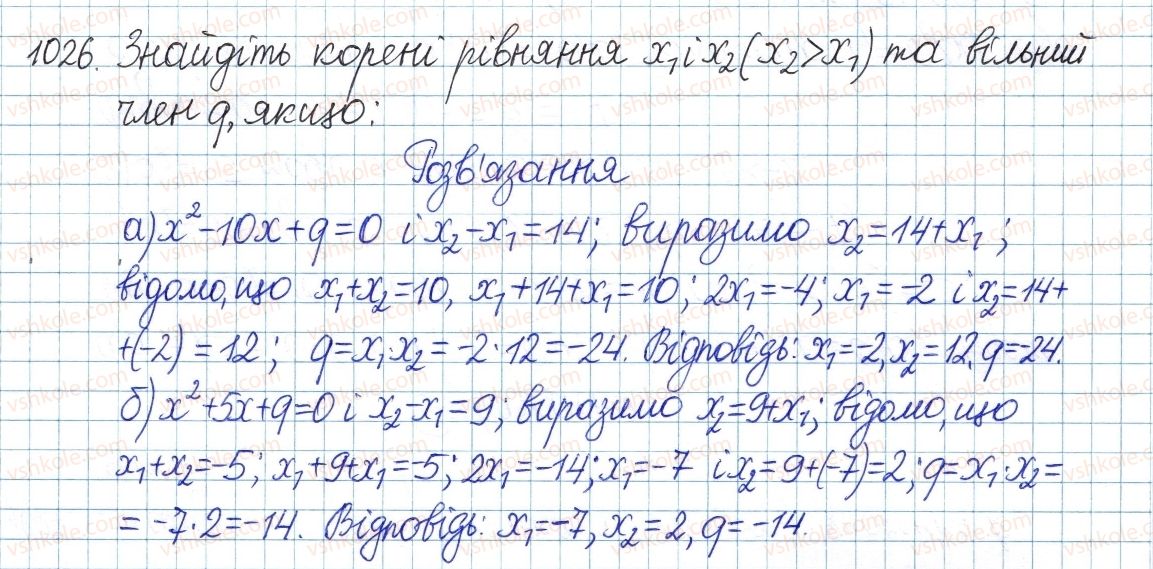 1026. Знайдіть корені рівняння x₁ і x₂ (x₂>x₁) та вільний
член q, якщо:
Розв'язання
а) x²-10x+q=0 і x₂-x₁=14; виразимо x₂=14+x₁;
відомо, що x₁+x₂=10, x₁+14+x₁=10; 2x₁=-4; x₁=-2 і x₂=14+
+(-2)=12; q=x₁x₂=-2·12=-24. Відповідь: x₁=-2, x₂=12, q=-24.
б) x²+5x+q=0 і x₂-x₁=9; виразимо x₂=9+x₁; відомо, що
x₁+x₂=-5; x₁+9+x₁=-5; 2x₁=-14; x₁=-7 і x₂=9+(-7)=2; q=x₁·x₂=
=-7·2=-14. Відповідь: x₁=-7, x₂=2, q=-14.